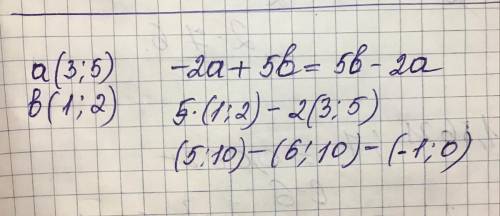 a(3;5) -2a + 5b = 5b - 2a
b(1;2) 5·(1;2) - 2(3;5)
(5;10) - (6;10) - (-1;0)